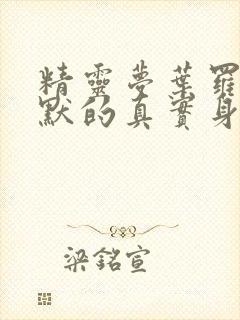 精靈夢葉羅
默的真實身
梁銘宣